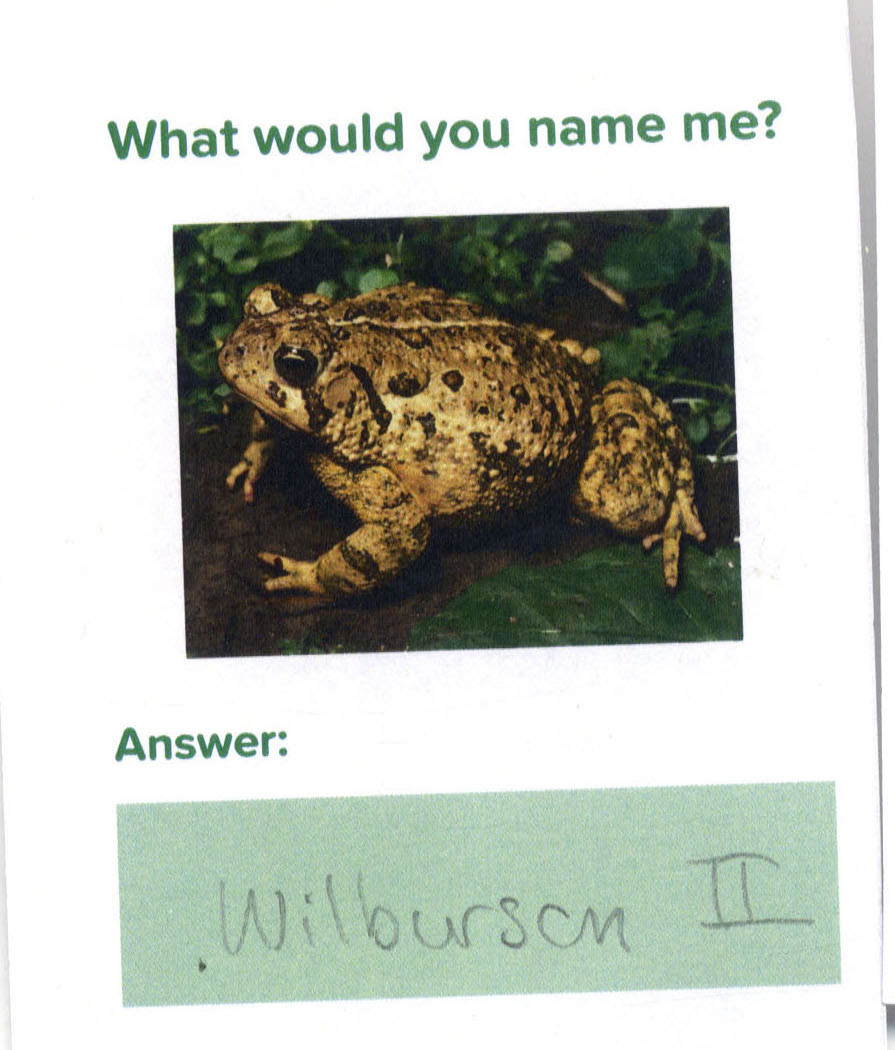 What would you name me?
Answer:
Wilburson II